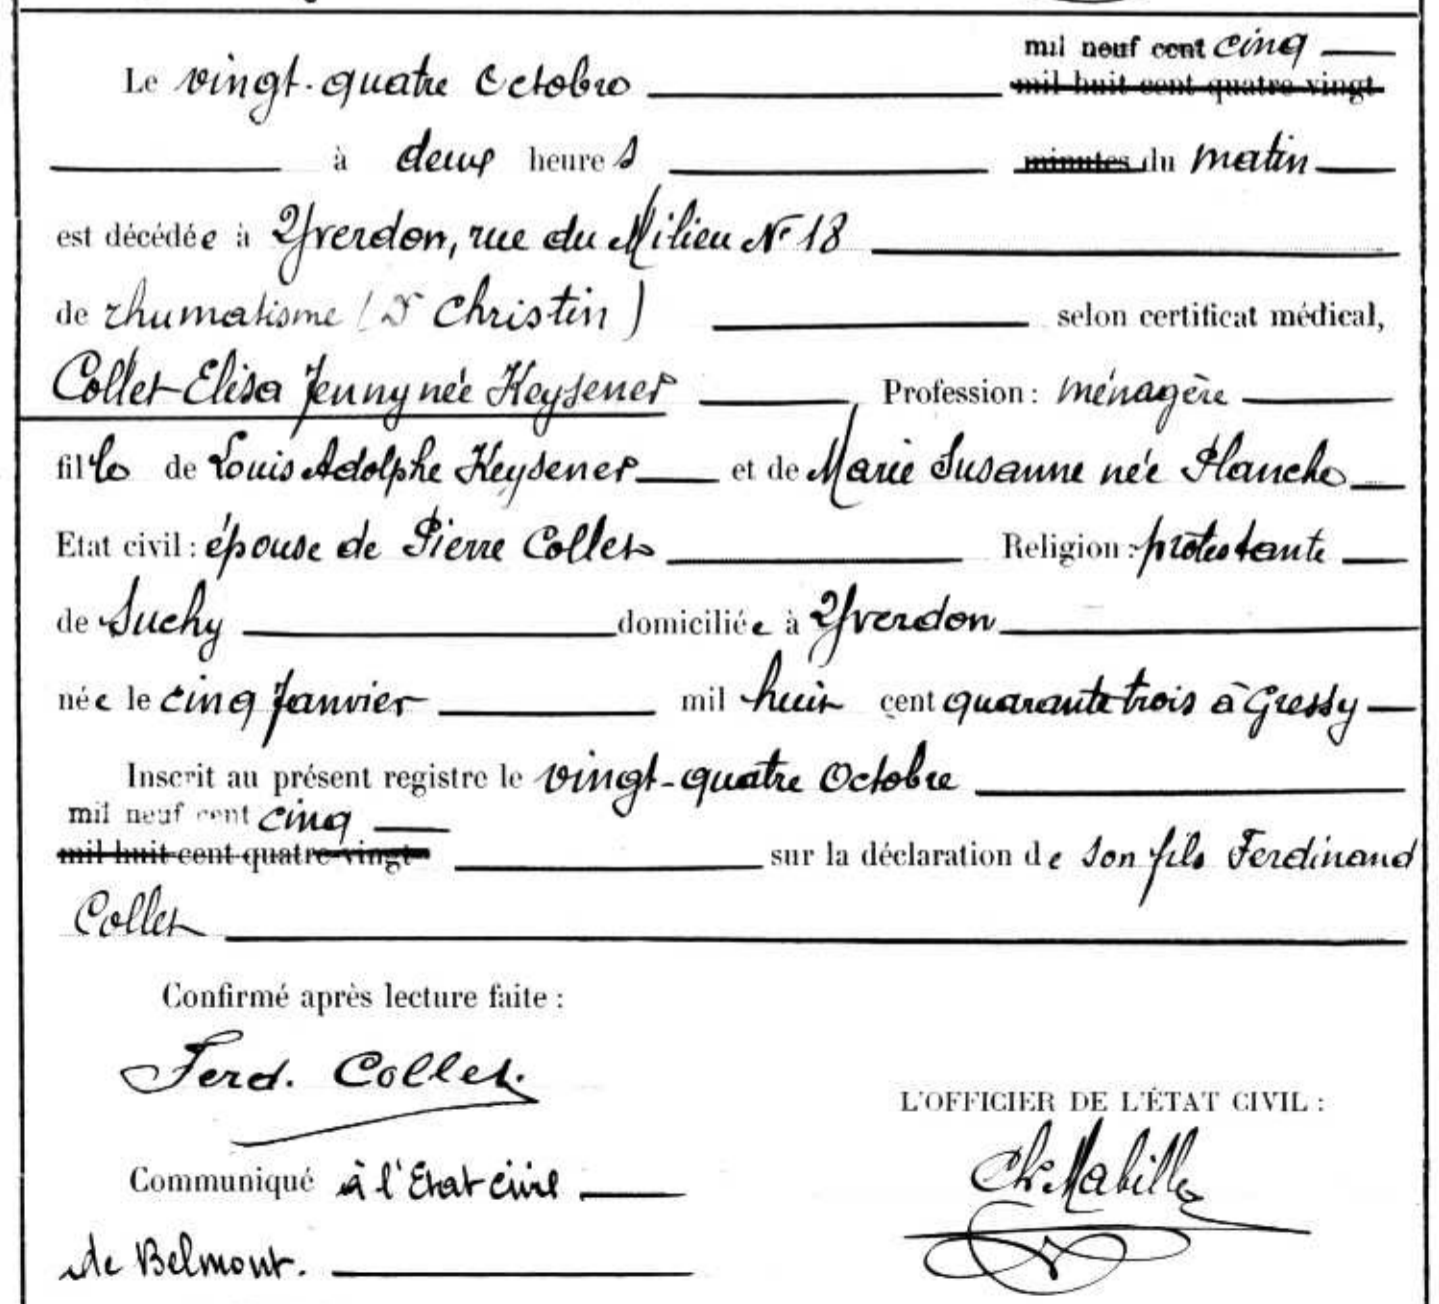 mil neuf cent cinq
Le vingt-quatre Octobre mil huit cent quatre-vingt
à deux heures minutes du matin
est décédée à Yverdon, rue du Milieu No 18
de rhumatisme (Dr Christin) selon certificat médical,
Collet Elisa Jenny née Keysener Profession : ménagère
fille de Louis Adolphe Keysener et de Marie Susanne née Planche
Etat civil : épouse de Pierre Collet Religion : protestante
de Suchy domiciliée à Yverdon
née le cinq Janvier mil huit cent quarante trois à Gressy
Inscrit au présent registre le vingt-quatre Octobre
mil neuf cent cinq
mil huit cent quatre-vingt sur la déclaration de son fils Ferdinand
Collet
Confirmé après lecture faite :
Ferd. Collet.
L'OFFICIER DE L'ÉTAT CIVIL :
Communiqué à l'Etat civil
Ch. Mabille
de Belmont.